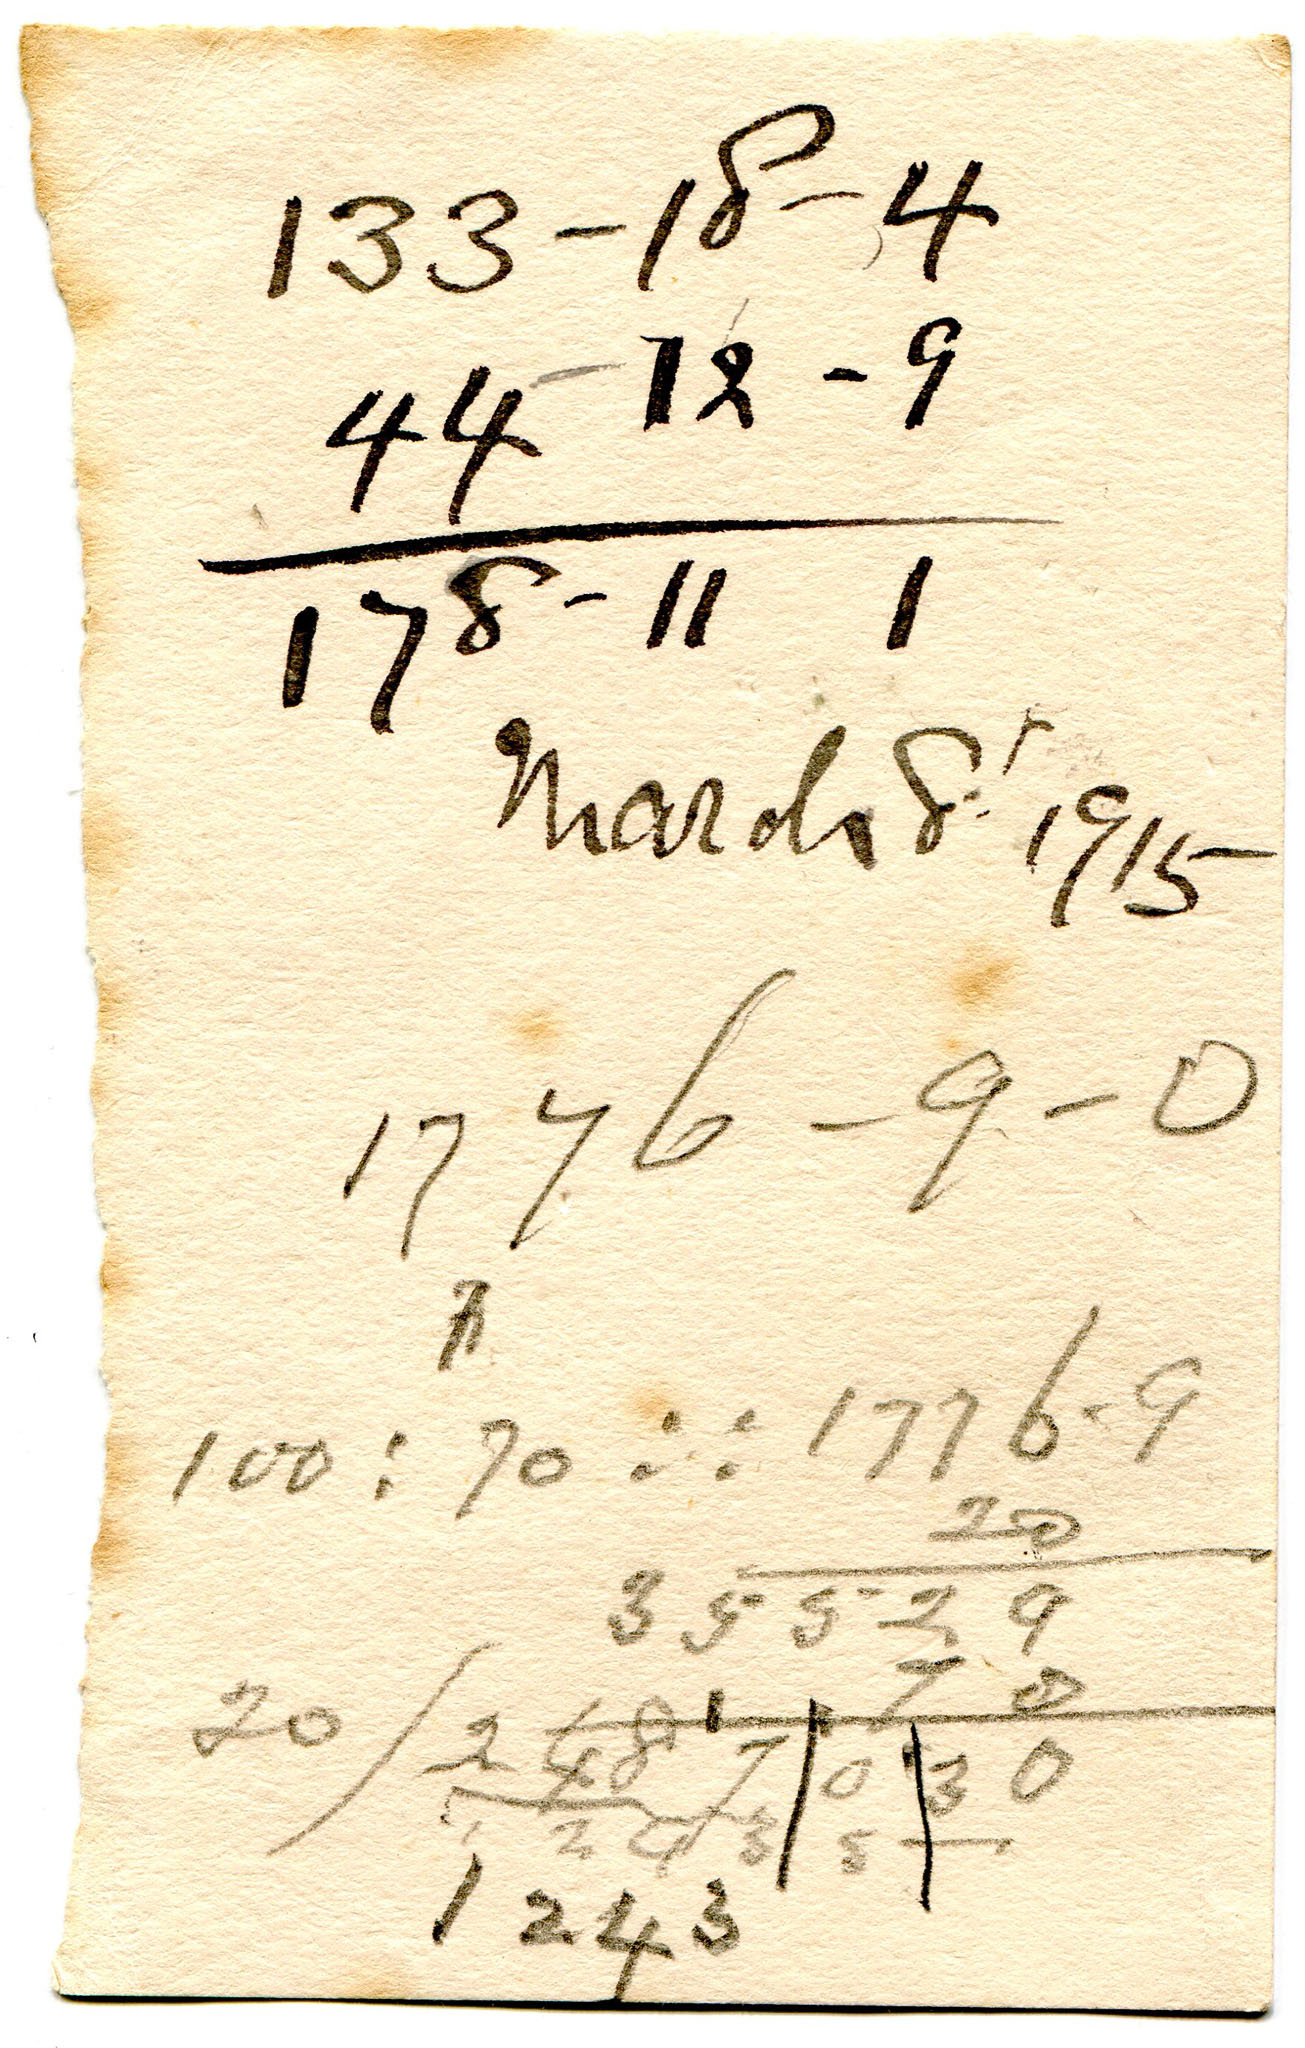 133 - 18 - 4
44 - 12 - 9
178 - 11 1
March 8th 1915
1776 - 9 - 0
7
100 : 70 :: 1776-9
20
35529
70
20 / 2487030
12435
1243